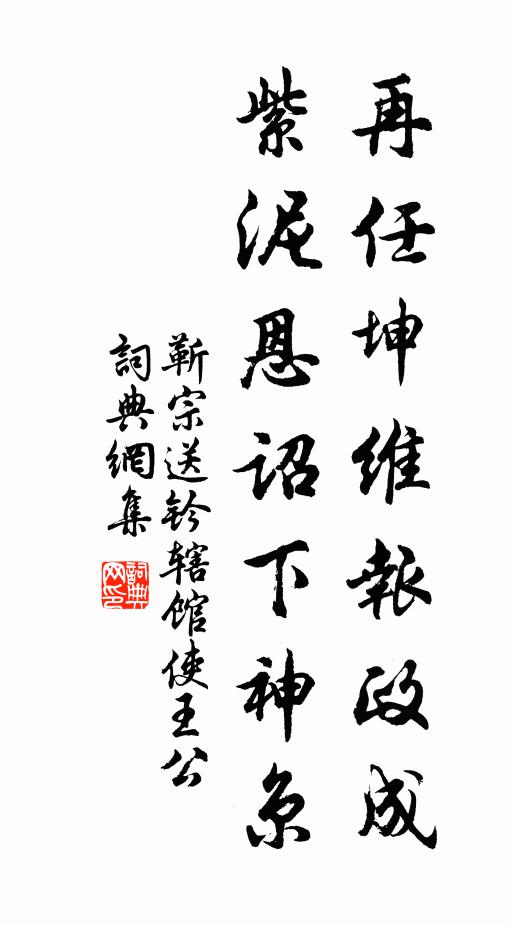 再任坤維報政成
紫泥恩詔下神京
靳宗送鈐辖馆使王公
詞典網集
詞典网印